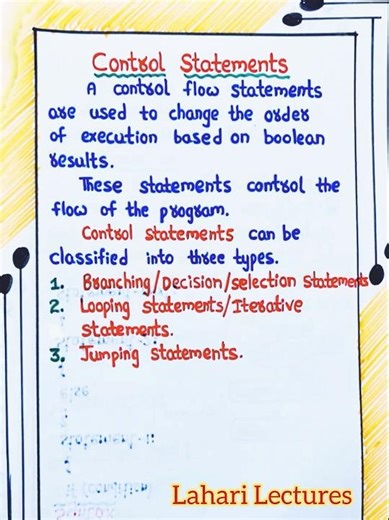 Control Statements
A control flow statements
are used to change the order
of execution based on boolean
results.
These statements control the
flow of the program.
Control statements can be
classified into three types.
1. Branching/Decision/selection Statements
2. Looping statements/Iterative
statements.
3. Jumping statements.
else
statement-1;
if (condition)
Syntax
Lahari Lectures